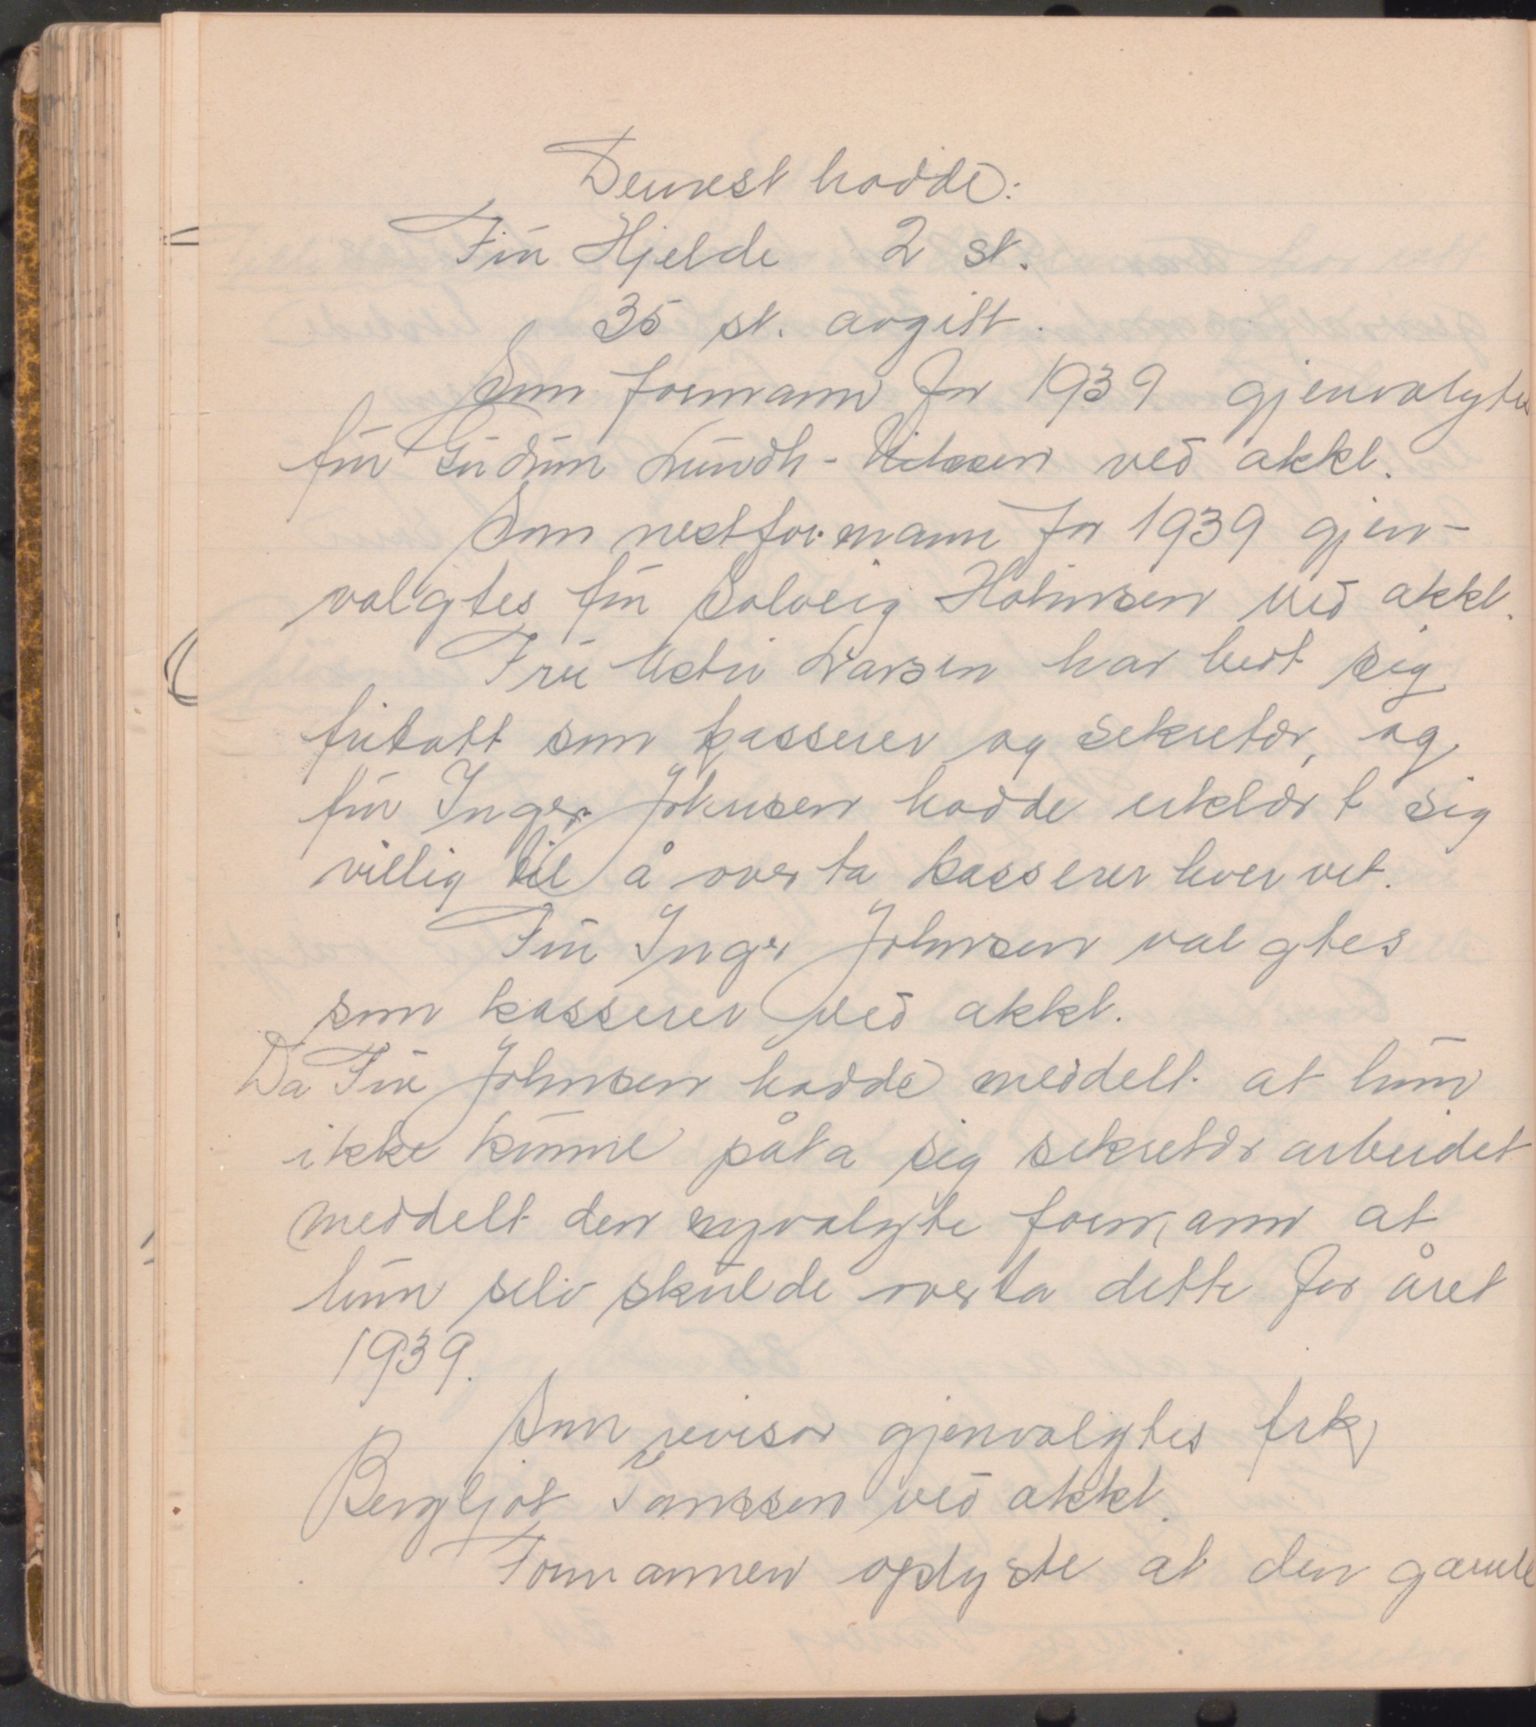 Dernest hadde:
Fru Hjelde 2 st.
35 st. avgitt.
Som formann for 1939 gjenvalgtes
fru Gudrun Lundh-Nilssen ved akkl.
Som nestformann for 1939 gjen-
valgtes fru Solveig Holmsen ved akkl.
Fru Larsen har bedt sig
fritatt som kasserer og sekretær, og
fru Inger Johnsen hadde erklært sig
villig til å overta kassererhvervet.
Fru Inger Johnsen valgtes
som kasserer ved akkl.
Da Fru Johnsen hadde meddelt at hun
ikke kunne påta sig sekretærarbeidet
meddelt den nyvalgte formann at
hun selv skulde overta dette for året
1939.
Som revisor gjenvalgtes frk.
Bergljot Janssen ved akkl.
Formannen oplyste at den gamle